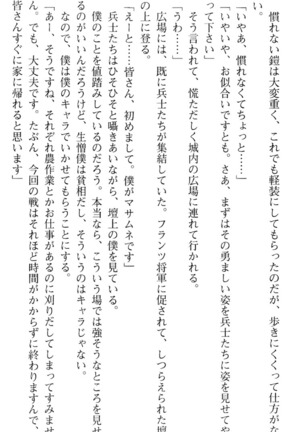 慣れない鎧は大変重く、これでも軽装にしてもらったのだが、歩きにくくって仕方がな
い。
「いやあ、慣れなくてちょっと――」
「いやいや、お似合いですとも。さあ、まずはその勇ましい姿を兵士たちに見せてや
って下さい」
そう言われて、慌ただしく城内の広場に連れて行かれる。
「うわ……」
広場には、既に兵士たちが集結していた。フランツ将軍に促されて、しつらえられた壇
の上に登る。
「えーと……皆さん、初めまして。僕がマサムネです」
兵士たちはひそひそと囁きあいながら、壇上の僕を見ている。
僕のことを値踏みしているのだろう。本当なら、こういう場では強そうなところを見せ
るのがいいんだろうけど、生憎僕は貧相だし、そういうのはキャラじゃない。
なので、僕は僕のキャラでいかせてもらうことにする。
「あー、そうですね、それぞれ農作業とかお仕事があるのに刈りだしてしまってすみませ
ん。でも、大丈夫です。たぶん、今回の戦はそれほど時間がかからずに終わりますんで、
皆さんすぐに家に帰れると思います」